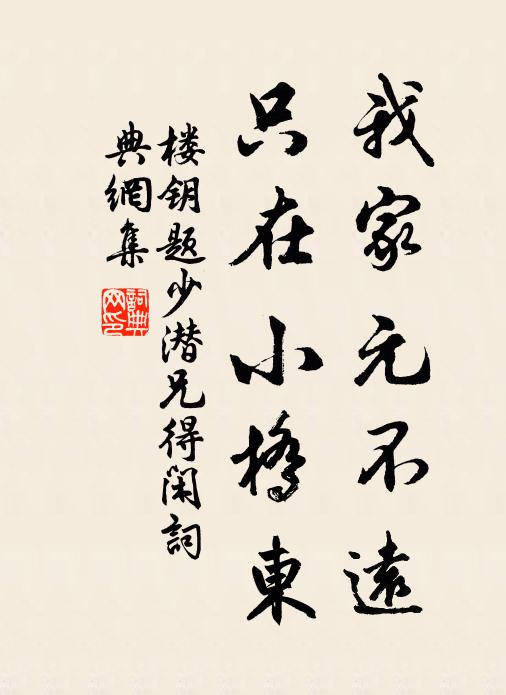 我家元不遠
只在小橋東
楼钥题少潜兄得闲詞
典網集
詞典网印